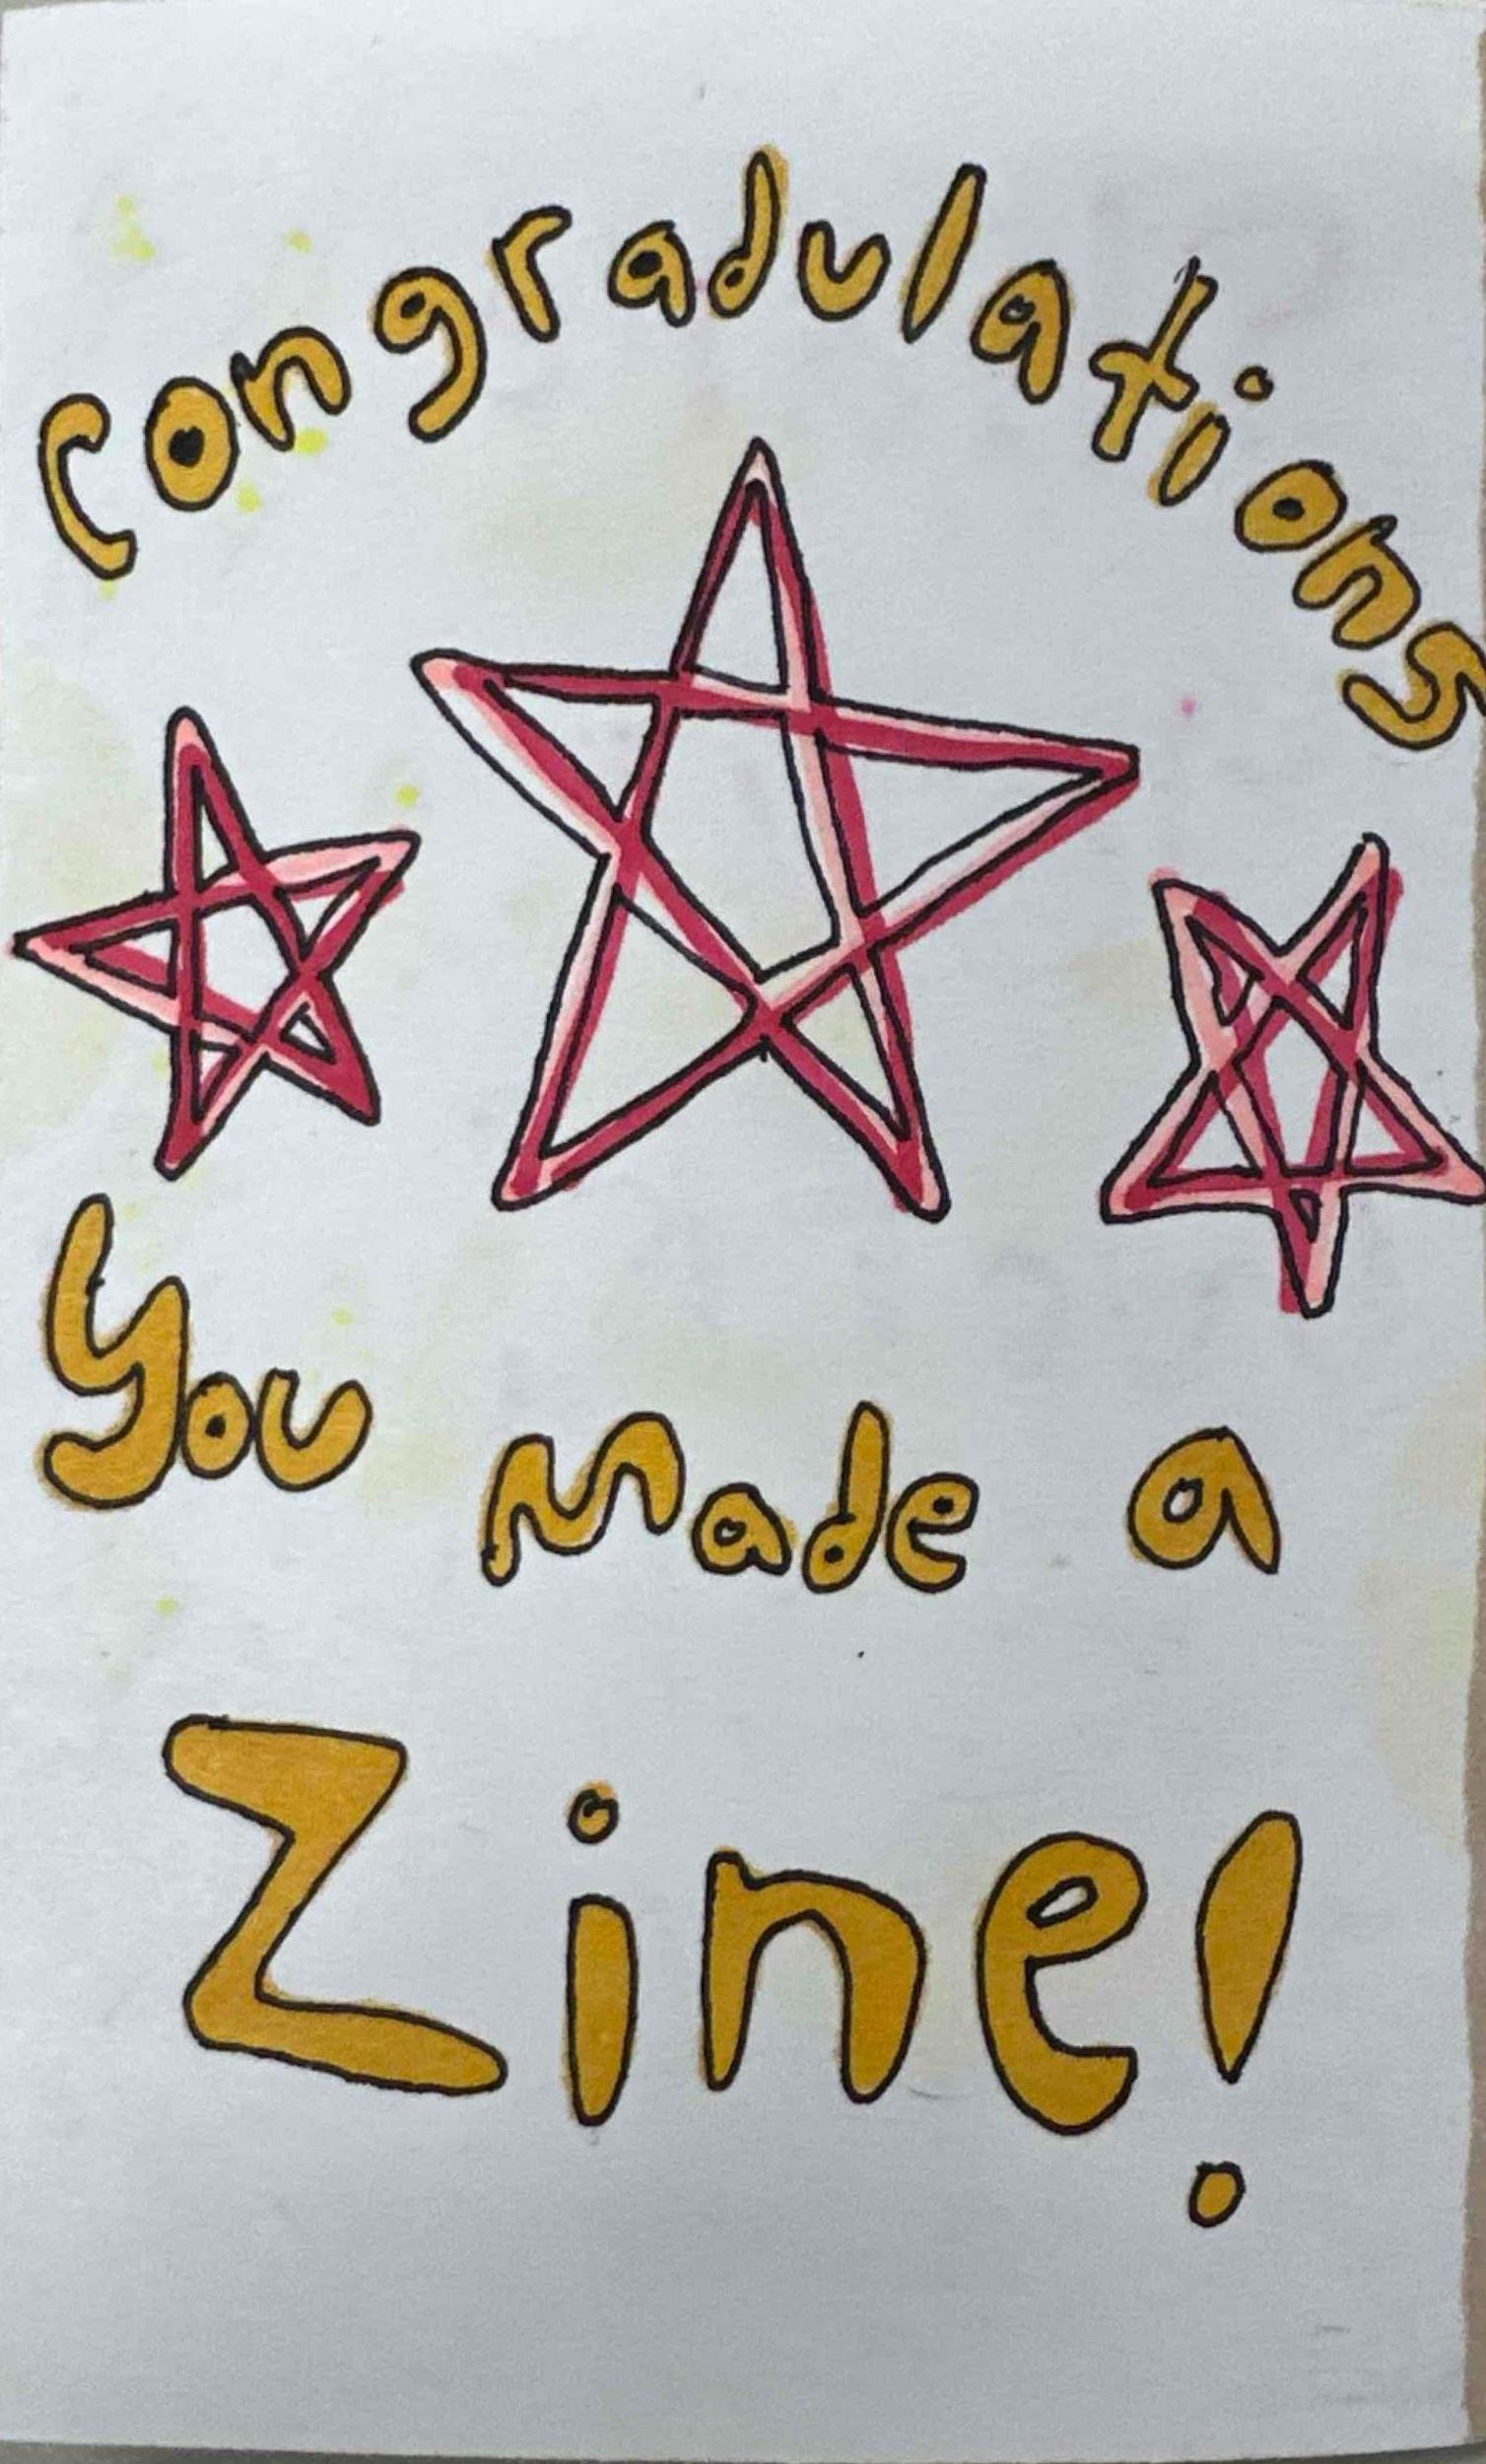 Congradulations
You Made a
Zine!